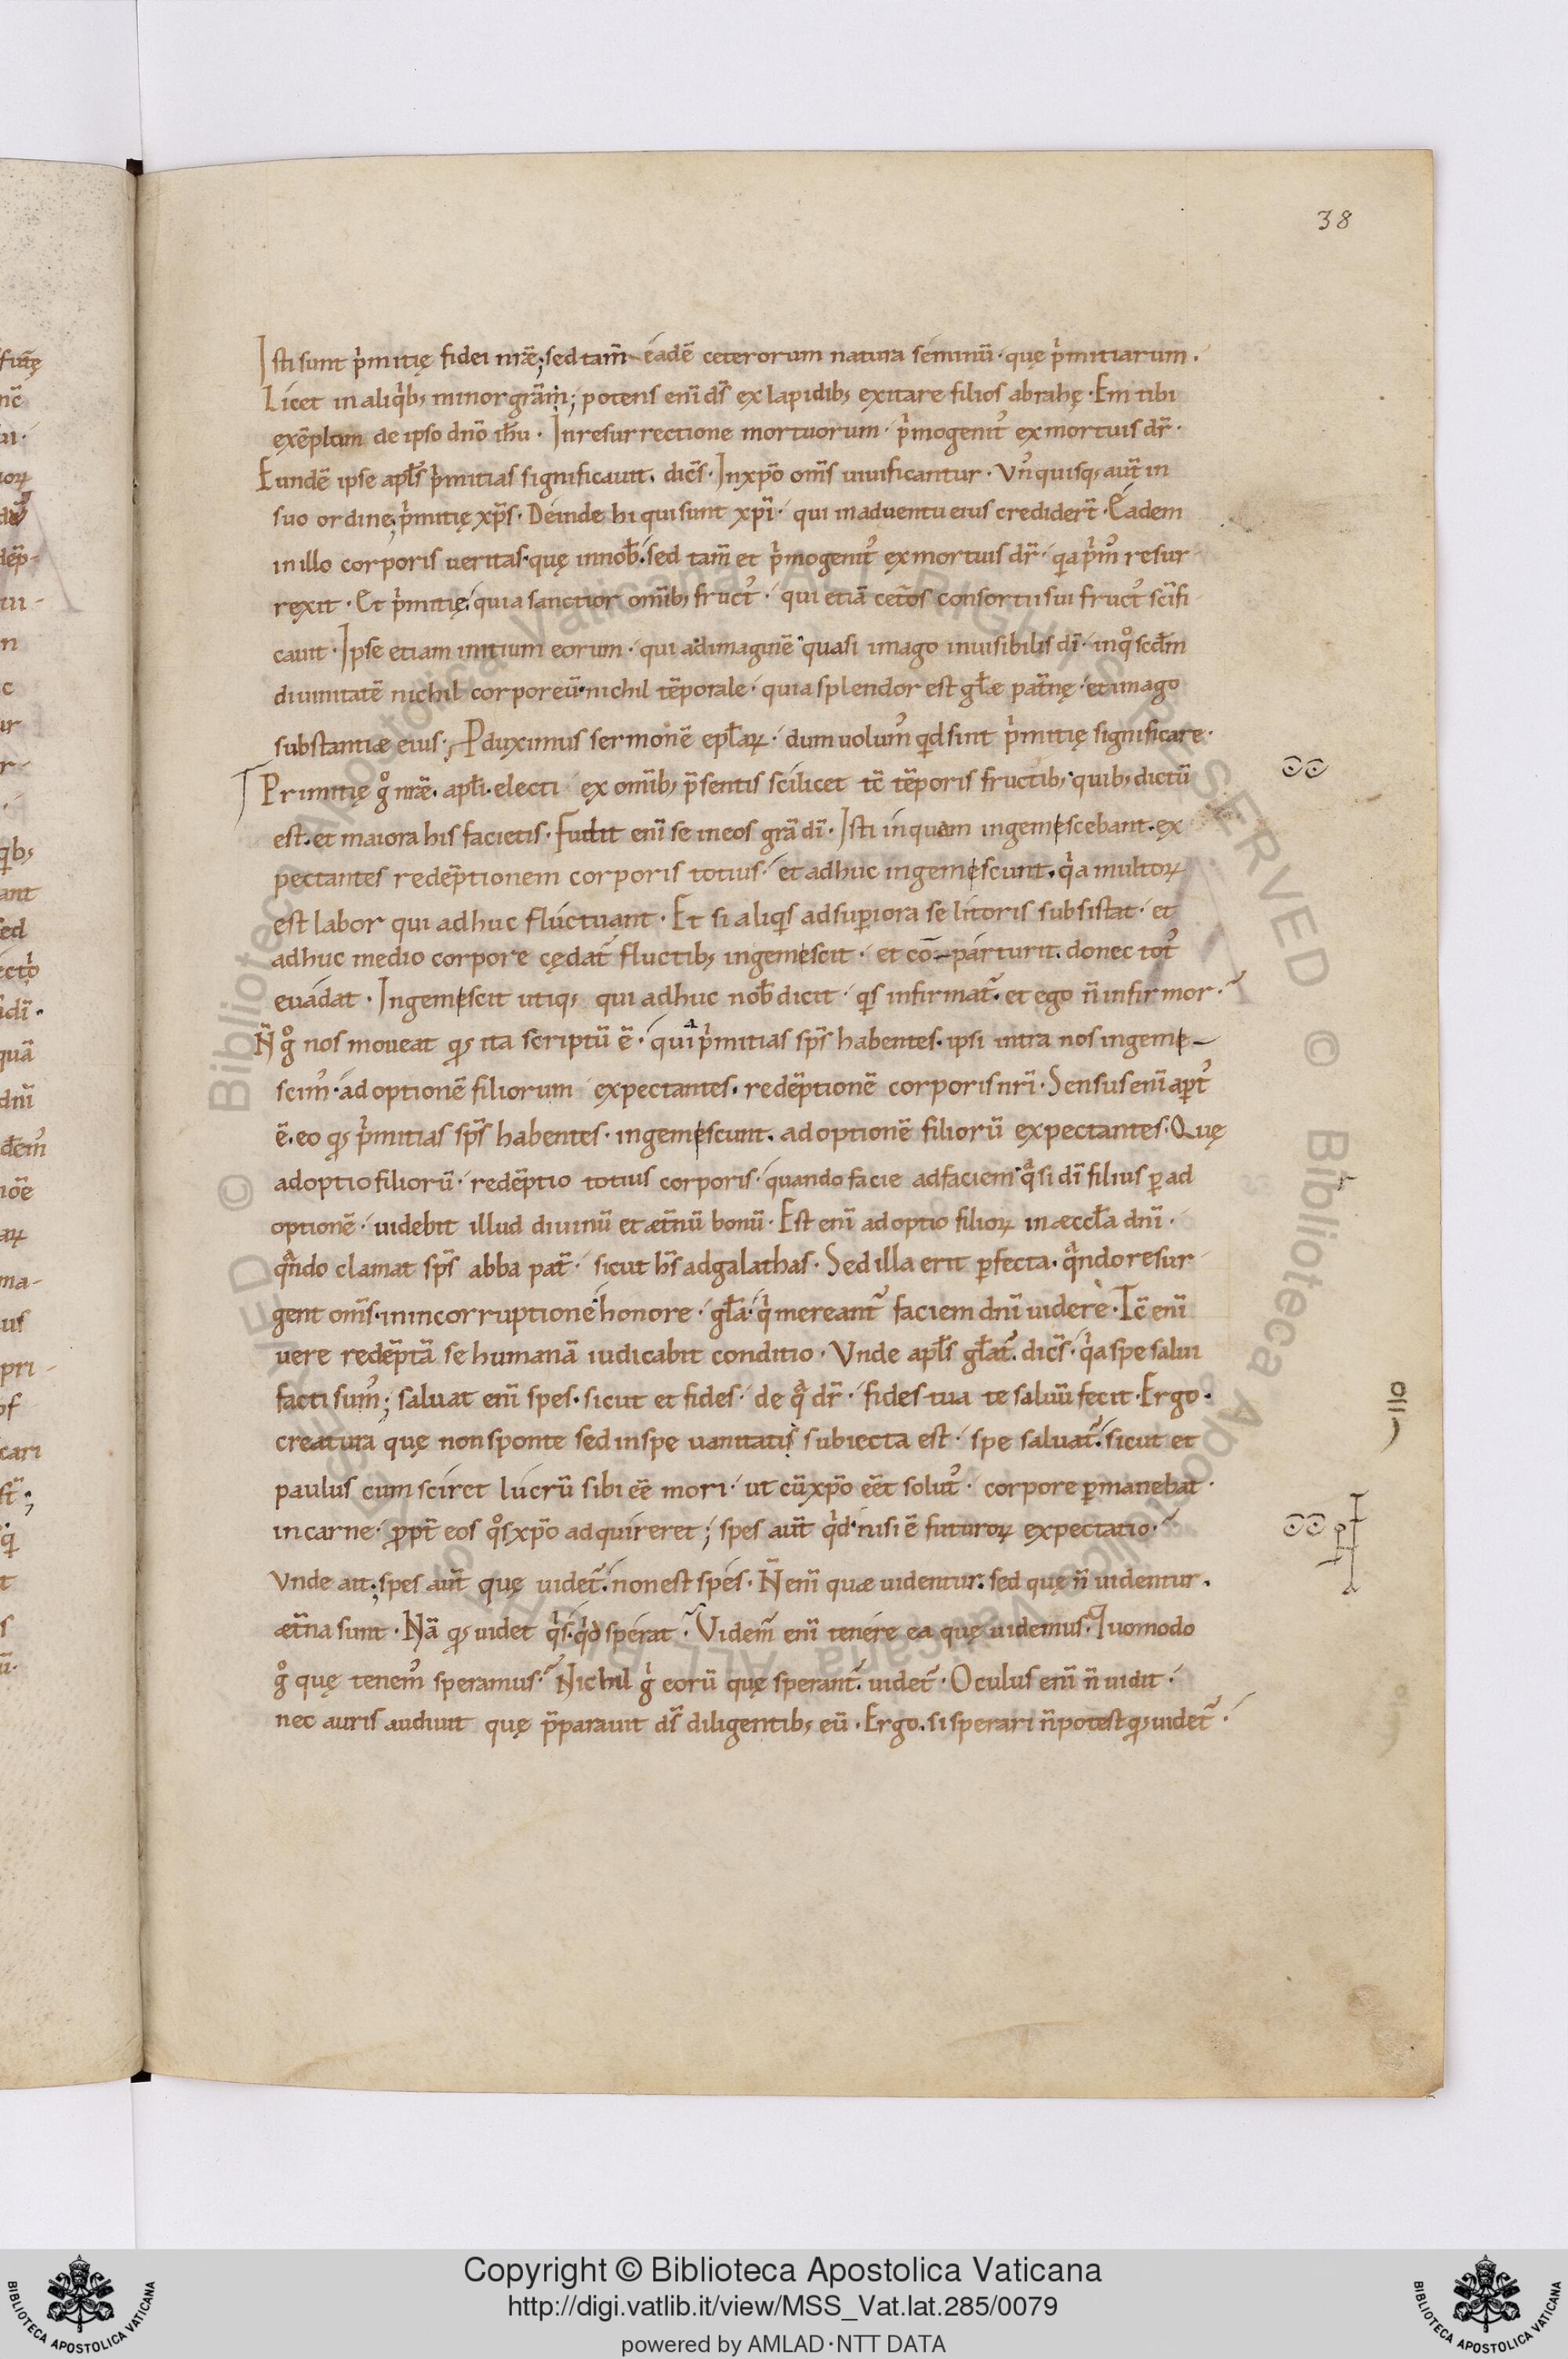 38
Isti sunt p̍mitię fidei nr̄æ; sed tam̄ eadē ceterorum natura seminū · quę p̍mitiarum .
Licet in aliq̍b; minor gr̄am; potens enī ds̄ ex lapidib; exitare filios abrahę · Em tibi
exēplum de ipso dn̄o ih̄u · In resurrectione mortuorum · p̍mogenit᾿ ex mortuis dr̄ ·
Eundē ipse apl̄s p̍mitias significauit . dicēs · In xp̄o om̄s uiuificantur · Vn᾿quisq; aut̄ in
suo ordine; p̍mitię xp̄s · Deinde hi qui sunt xp̄i · qui in aduentu eius credider̄t · Eadem
in illo corporis ueritas · quę in nob̄ · sed tam̄ et p̍mogenit᾿ ex mortuis dr̄ · qa p̍m᾿ resur
rexit · Et p̍mitię · quia sanctior om̄ib; fruct᾿ · qui etiā cet̄os consortii sui fruct᾿ sc̄ifi
cauit · Ipse etiam initium eorum · qui ad imaginē quasi imago inuisibilis dī · in q̊ scd̄m
diuinitatē nichil corporeū · nichil tēporale · quia splendor est gl̄æ pat̄nę · et imago
substantiæ eius · Pduximus sermonē epl̄aꝝ · dum uolum᾿ qd sint p̍mitię significare ·
Primitię g̊ nr̄æ . apl̄i · electi ex om̄ib; p̄sentis scilicet tc̄ tēporis fructib; · quib; dictū
est · et maiora his facietis · Fudit enī se in eos gr̄a dī · Isti inquam ingemescebant · ex
pectantes redēptionem corporis totius · et adhuc ingemescunt . q̍a multoꝝ
est labor qui adhuc fluctuant · Et si aliqs ad supiora se litoris subsistat · et
adhuc medio corpore cędat᷑ fluctib; ingemescit · et cō-parturit . donec tot᾿
euadat · Ingemescit utiq; qui adhuc nob̄ dicit · qs infirmat᷑ . et ego n̄ infirmor ·
N̄ g̊ nos moueat qs ita scriptū ē · qui p̍mitias sps̄ habentes · ipsi intra nos ingeme-
scim᾿ · adoptionē filiorum expectantes . redēptionē corporis nr̄i · Sensus enī apt᾿
ē . eo qs p̍mitias sps̄ habentes · ingemescunt . adoptionē filiorū expectantes · Quę
adoptio filiorū · redēptio totius corporis · quando facie ad faciem qͣsi dī filius p ad
optionē · uidebit illud diuinū et æt̄nū bonū · Est enī adoptio filioꝝ in æccl̄a dn̄i ·
qͣndo clamat sps̄ abba pat̄ · sicut hs̄ ad galathas · Sed illa erit pfecta . qͣndo resur
gent om̄s · in incorruptione honore · gl̄a · q̍ mereant᷑ faciem dn̄i uidere · Tc̄ enī
uere redēptā se humanā iudicabit conditio · Vnde apl̄s gl̄at᷑ . dicēs · q̍a spe salui
facti sum᾿; saluat enī spes · sicut et fides · de qͣ dr̄ · fides tua te saluū fecit · Ergo ·
creatura quę non sponte sed in spe uanitatis subiecta est · spe saluat᷑ · sicut et
paulus cum sciret lucrū sibi eē mori · ut cū xp̄o eēt solut᾿ · corpore pmanebat ·
in carne · ppt̄ eos q̊s xp̄o adquireret; spes aut̄ q̍d · nisi ē futuroꝝ expectatio ·
Vnde ait; spes aut̄ quę uidet᷑ · non est spes · N̄ enī quæ uidentur . sed quę n̄ uidentur .
æt̄na sunt · Nā qs uidet q̍s · q̍d sperat · Videm᷑ enī tenere ea quę uidemus · Quomodo
g̊ quę tenem᾿ speramus · Nichil g̍ eorū quę sperant᷑ . uidet᷑ · Oculus enī n̄ uidit ·
nec auris audiuit quę p̄parauit ds̄ diligentib; eū · Ergo . si sperari n̄ potest qs uidet᷑ ·
Copyright © Biblioteca Apostolica Vaticana
http://digi.vatlib.it/view/MSS_Vat.lat.285/0079
powered by AMLAD·NTT DATA